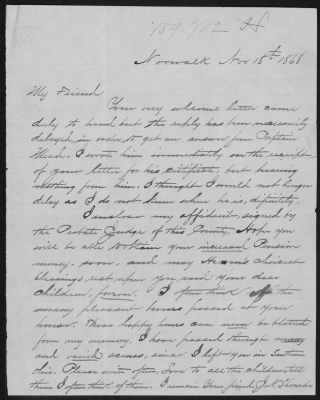 189.712
Norwalk Nov 18th 1868
My Friend
Your very welcome letter came
duly to hand but the reply has been necessarily
delayed in order to get an answer from Captain
Head. I wrote him immediately on the receipt
of your letter for his certificate, but hearing
nothing from him. I thought I would not longer
delay as I do not know where he is, definitely.
I enclose my affidavit, signed by
the Probate Judge of this County, Hope you
will be able to obtain your increased Pension
money, soon, and may Heaven's choicest
blessings rest upon you, and your dear
children, forever. I often think of the
many pleasant hours passed at your
house. Those happy hours can never be blotted
from my memory. I have passed through many
and varied scenes, since I left you in
this. Please write often, Love to all the children tell
them I often think of them. I remain Your friend